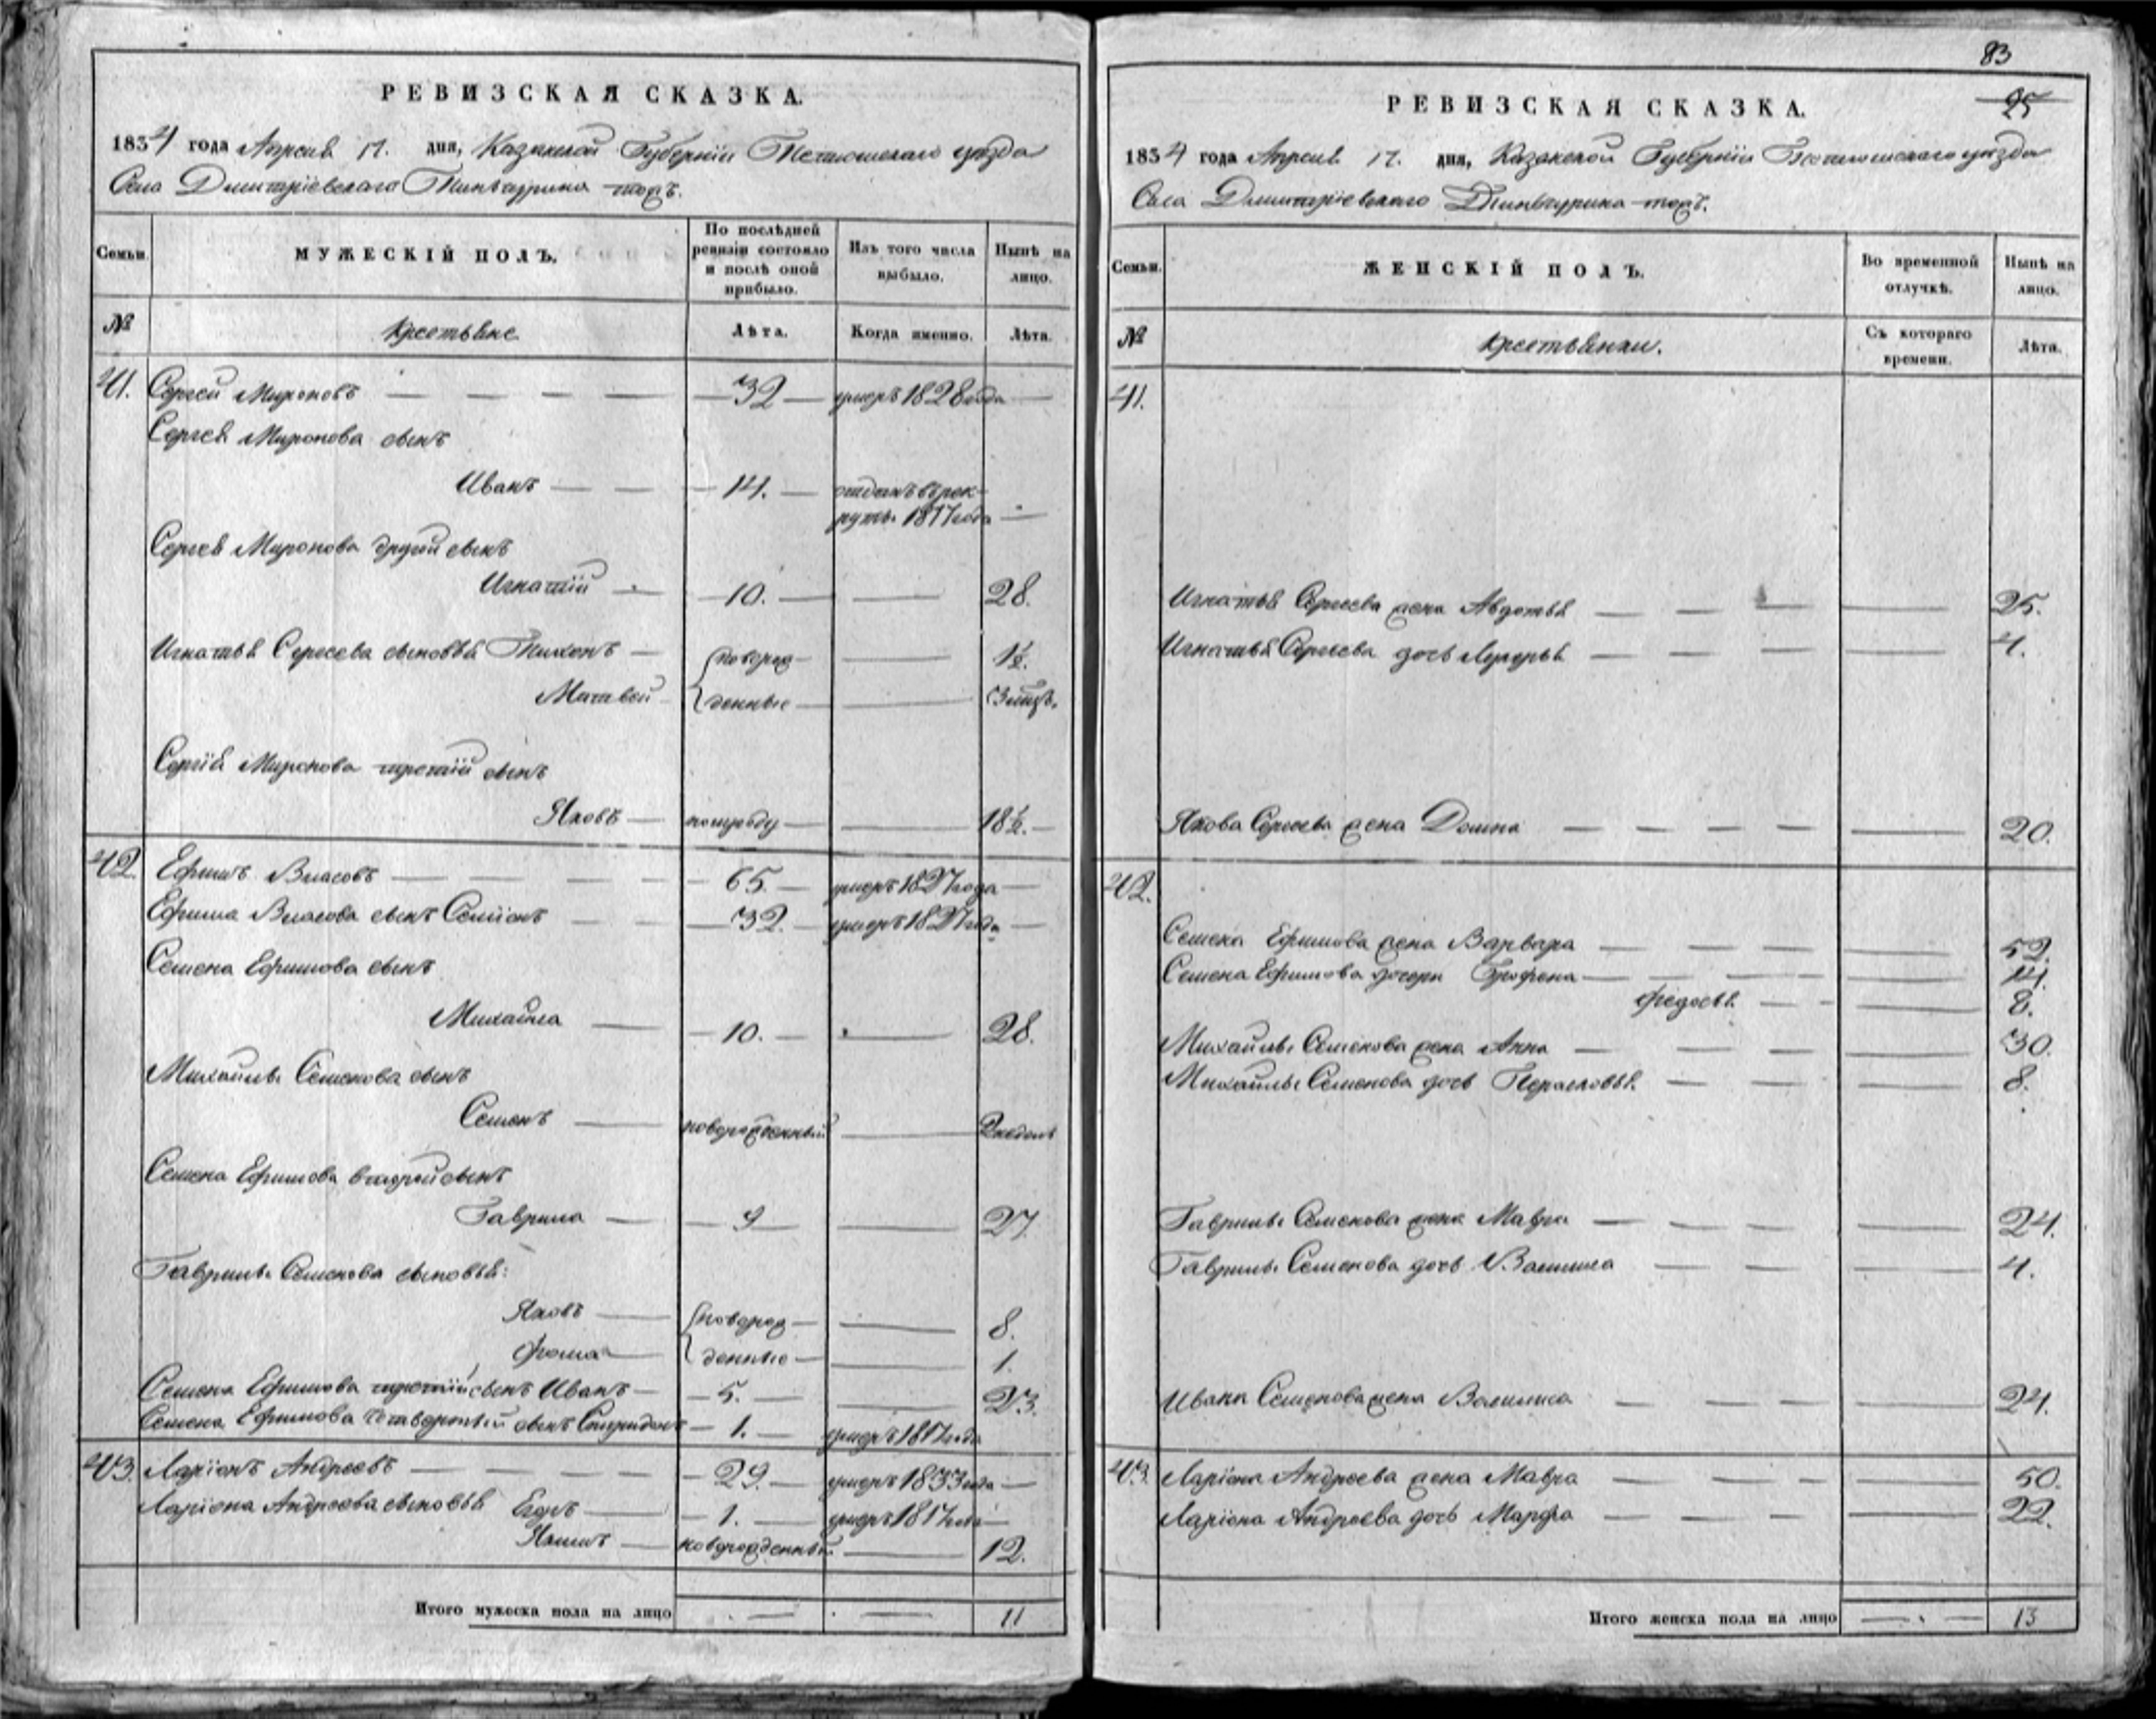 РЕВИЗСКАЯ СКАЗКА.
1834 года Апреля 17. дня, Казанской Губернiи Тетюшскаго уѣзда
Села Дмитрiевскаго
МУЖЕСКIЙ ПОЛЪ.
Семьи.
По послѣдней ревизiи состояло и послѣ оной прибыло.
Изъ того числа выбыло.
Нынѣ на лицо.
№
Крестьяне
Лѣта.
Когда именно.
Лѣта.
41. Сергей Мироновъ 32 умеръ 1828 года
Сергея Миронова сынъ
Иванъ 14. отданъ въ рек-
руты 1817 года
Сергея Миронова другой сынъ
Игнатiй 10. 28.
Игнатья Сергеева сыновья Тихонъ новорож- 1½.
Матвей денные 3 мѣц.
Сергiя Миронова третiй сынъ
Яковъ 18½.
42. Ефимъ Власовъ 65. умеръ 1827 года
Ефима Власова сынъ Семiонъ 32. умеръ 1827 года
Семена Ефимова сынъ
Михайла 10. 28.
Михайлы Семенова сынъ
Семенъ новорожденный 2 недель
Семена Ефимова вторый сынъ
Гаврила 9 27.
Гаврилы Семенова сыновья:
Яковъ новорож- 8.
Фома денные 1.
Семена Ефимова третiй сынъ Иванъ 5. 23.
Семена Ефимова четвертый сынъ Спиридонъ 1. умеръ 1817 года
43. Ларiонъ Андреевъ 29. умеръ 1833 года
Ларiона Андреева сыновья Егоръ 1. умеръ 1817 года
Якимъ новорожденный 12.
Итого мужеска пола на лицо 11
83
25
РЕВИЗСКАЯ СКАЗКА.
1834 года Апреля 17. дня, Казанской Губернiи Тетюшскаго уѣзда
Села Дмитрiевскаго
Семьи.
ЖЕНСКIЙ ПОЛЪ.
Во временной отлучкѣ.
Нынѣ на лицо.
№
Крестьянки.
Съ котораго времени.
Лѣта.
41.
Игнатья Сергеева жена Авдотья 25.
Игнатья Сергеева дочь Лукерья 4.
Якова Сергеева жена Домна 20.
42.
Семена Ефимова жена Варвара 52.
Семена Ефимова дочери Грофена 14.
Федосья 8.
Михайлы Семенова жена Анна 30.
Михайлы Семенова дочь Парасковья 8.
Гаврилы Семенова жена Мавра 24.
Гаврилы Семенова дочь Василиса 4.
Ивана Семенова жена Василиса 24.
43. Ларiона Андреева жена Мавра 50.
Ларiона Андреева дочь Марфа 22.
Итого женска пола на лицо 13